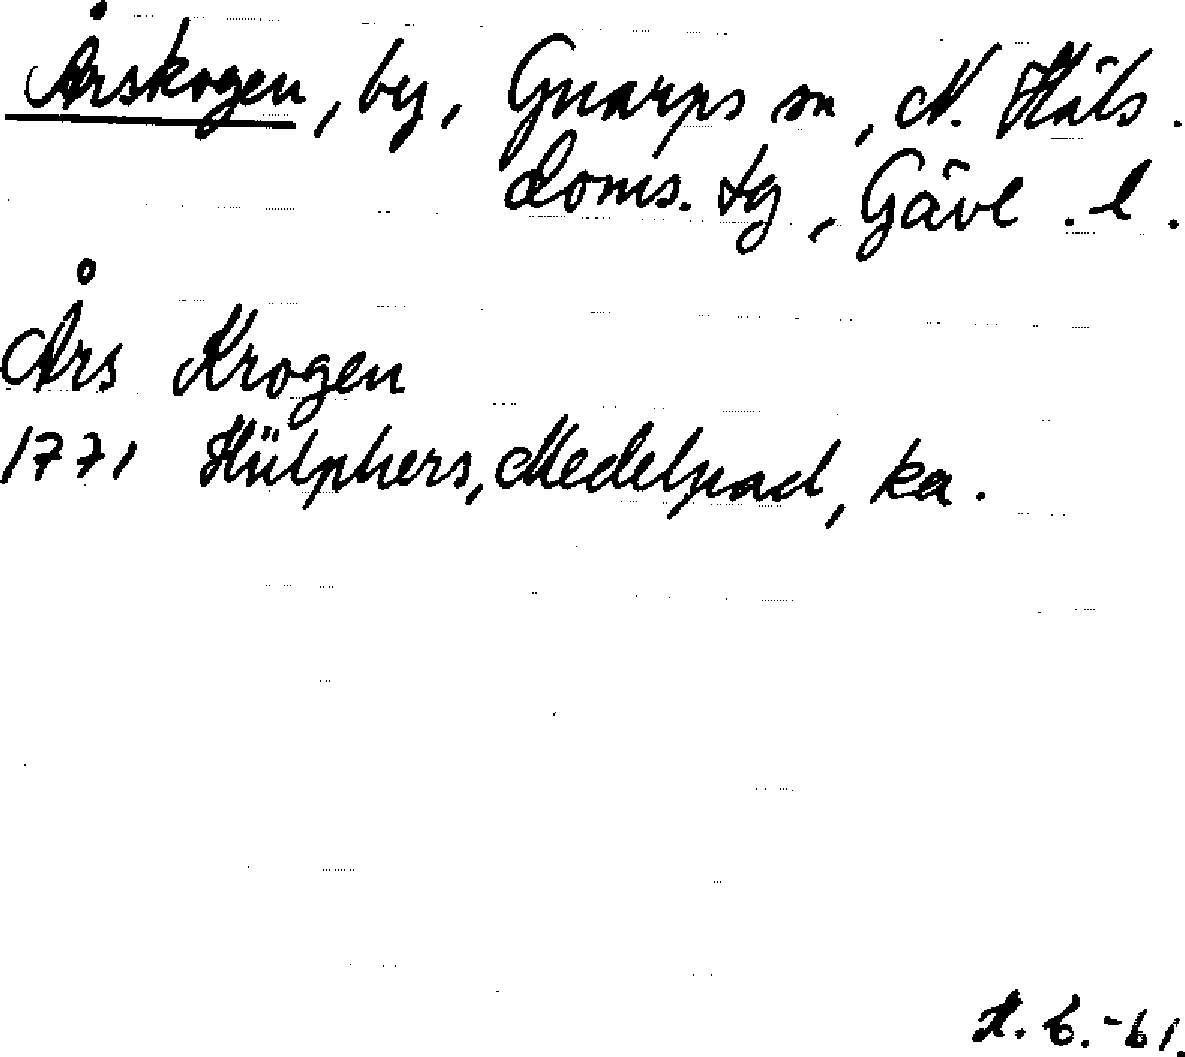 Årskogen, by, Gnarps sn, N. Häls.
doms. tg, Gävl. l.
Års Krogen
1771 Hülphers, Medelpad, ka.
H. B.-61.